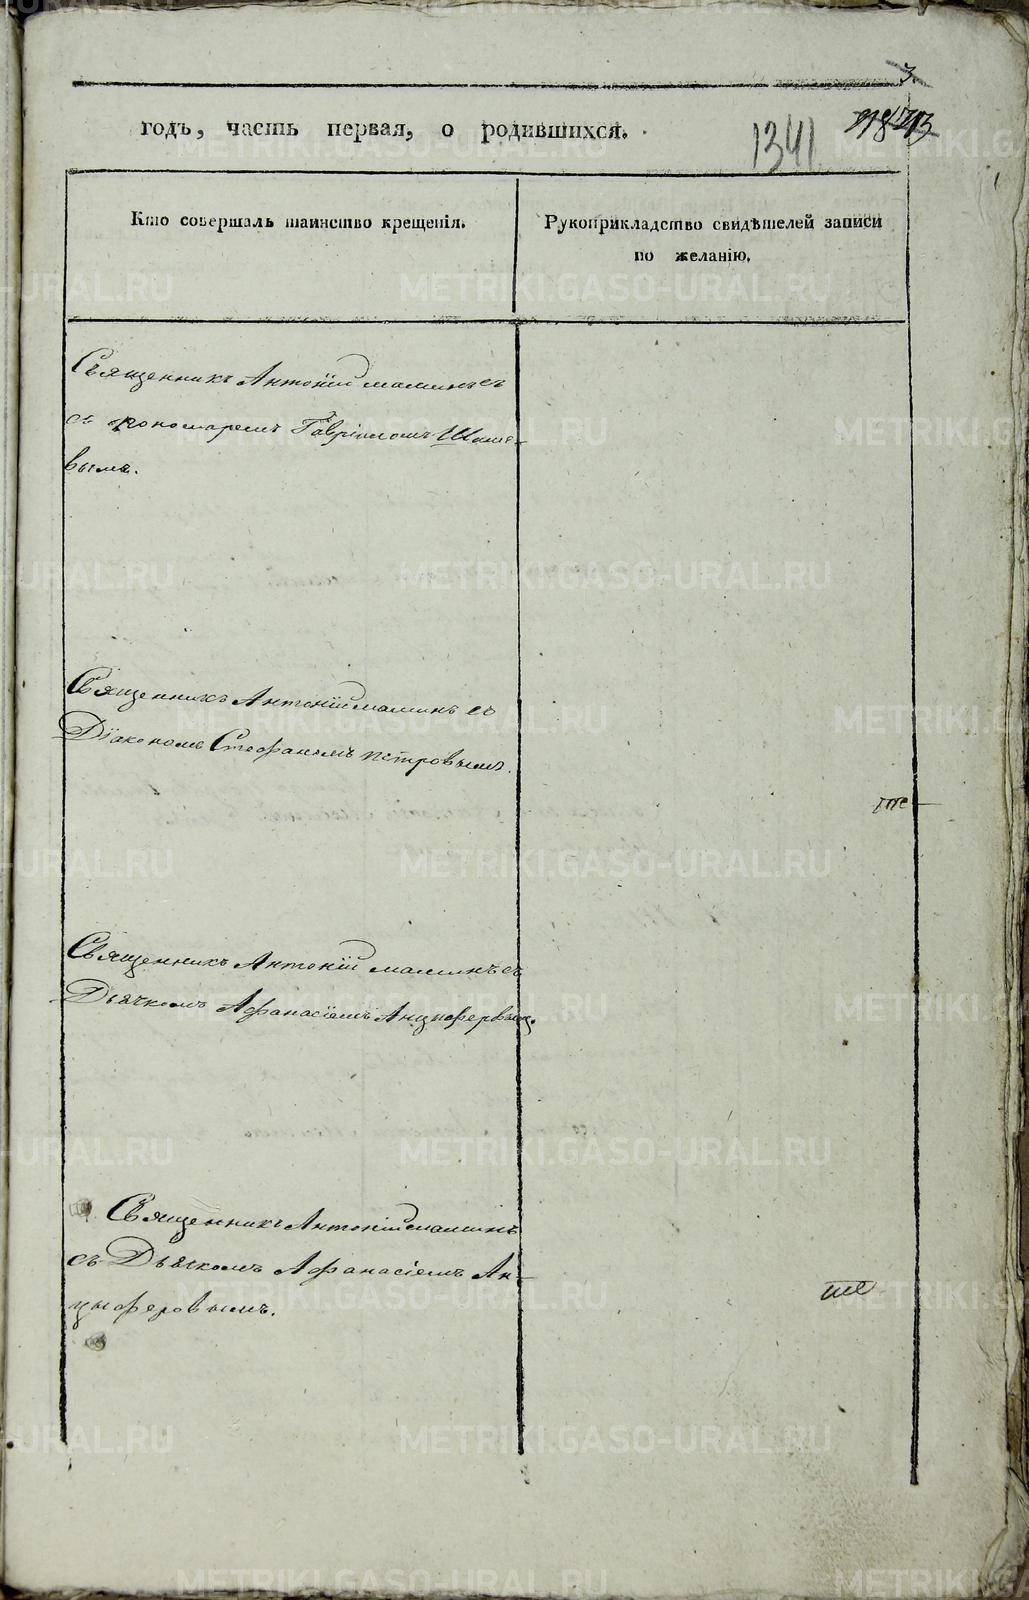 3.
годъ, часть первая, о родившихся.
1341
Кто совершалъ таинство крещенія.
Рукоприкладство свидѣтелей записи
по желанію.
Священникъ Антоній Маминъ съ
пономаремъ Гавріиломъ
вымъ.
Священникъ Антоній Маминъ съ
Діакономъ Стефаномъ Петровымъ.
Священникъ Антоній Маминъ съ
Дьячкомъ Афанасіемъ Анцыферовым.
Священникъ Антоній Маминъ
съ Дьячкомъ Афанасіемъ Ан-
цыферовымъ.
METRIKI.GASO-URAL.RU